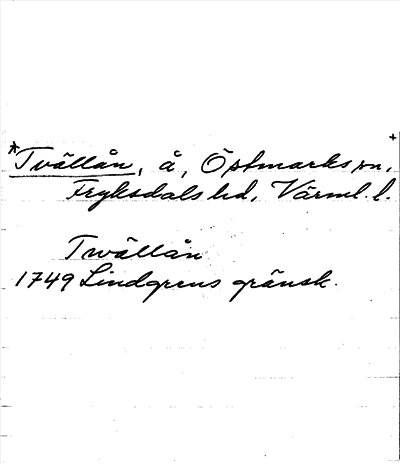 *Tvällån, å, Östmarks sn,
Fryksdals hd, Värml. l.
Twällån
1749 Lindgrens gränsk.